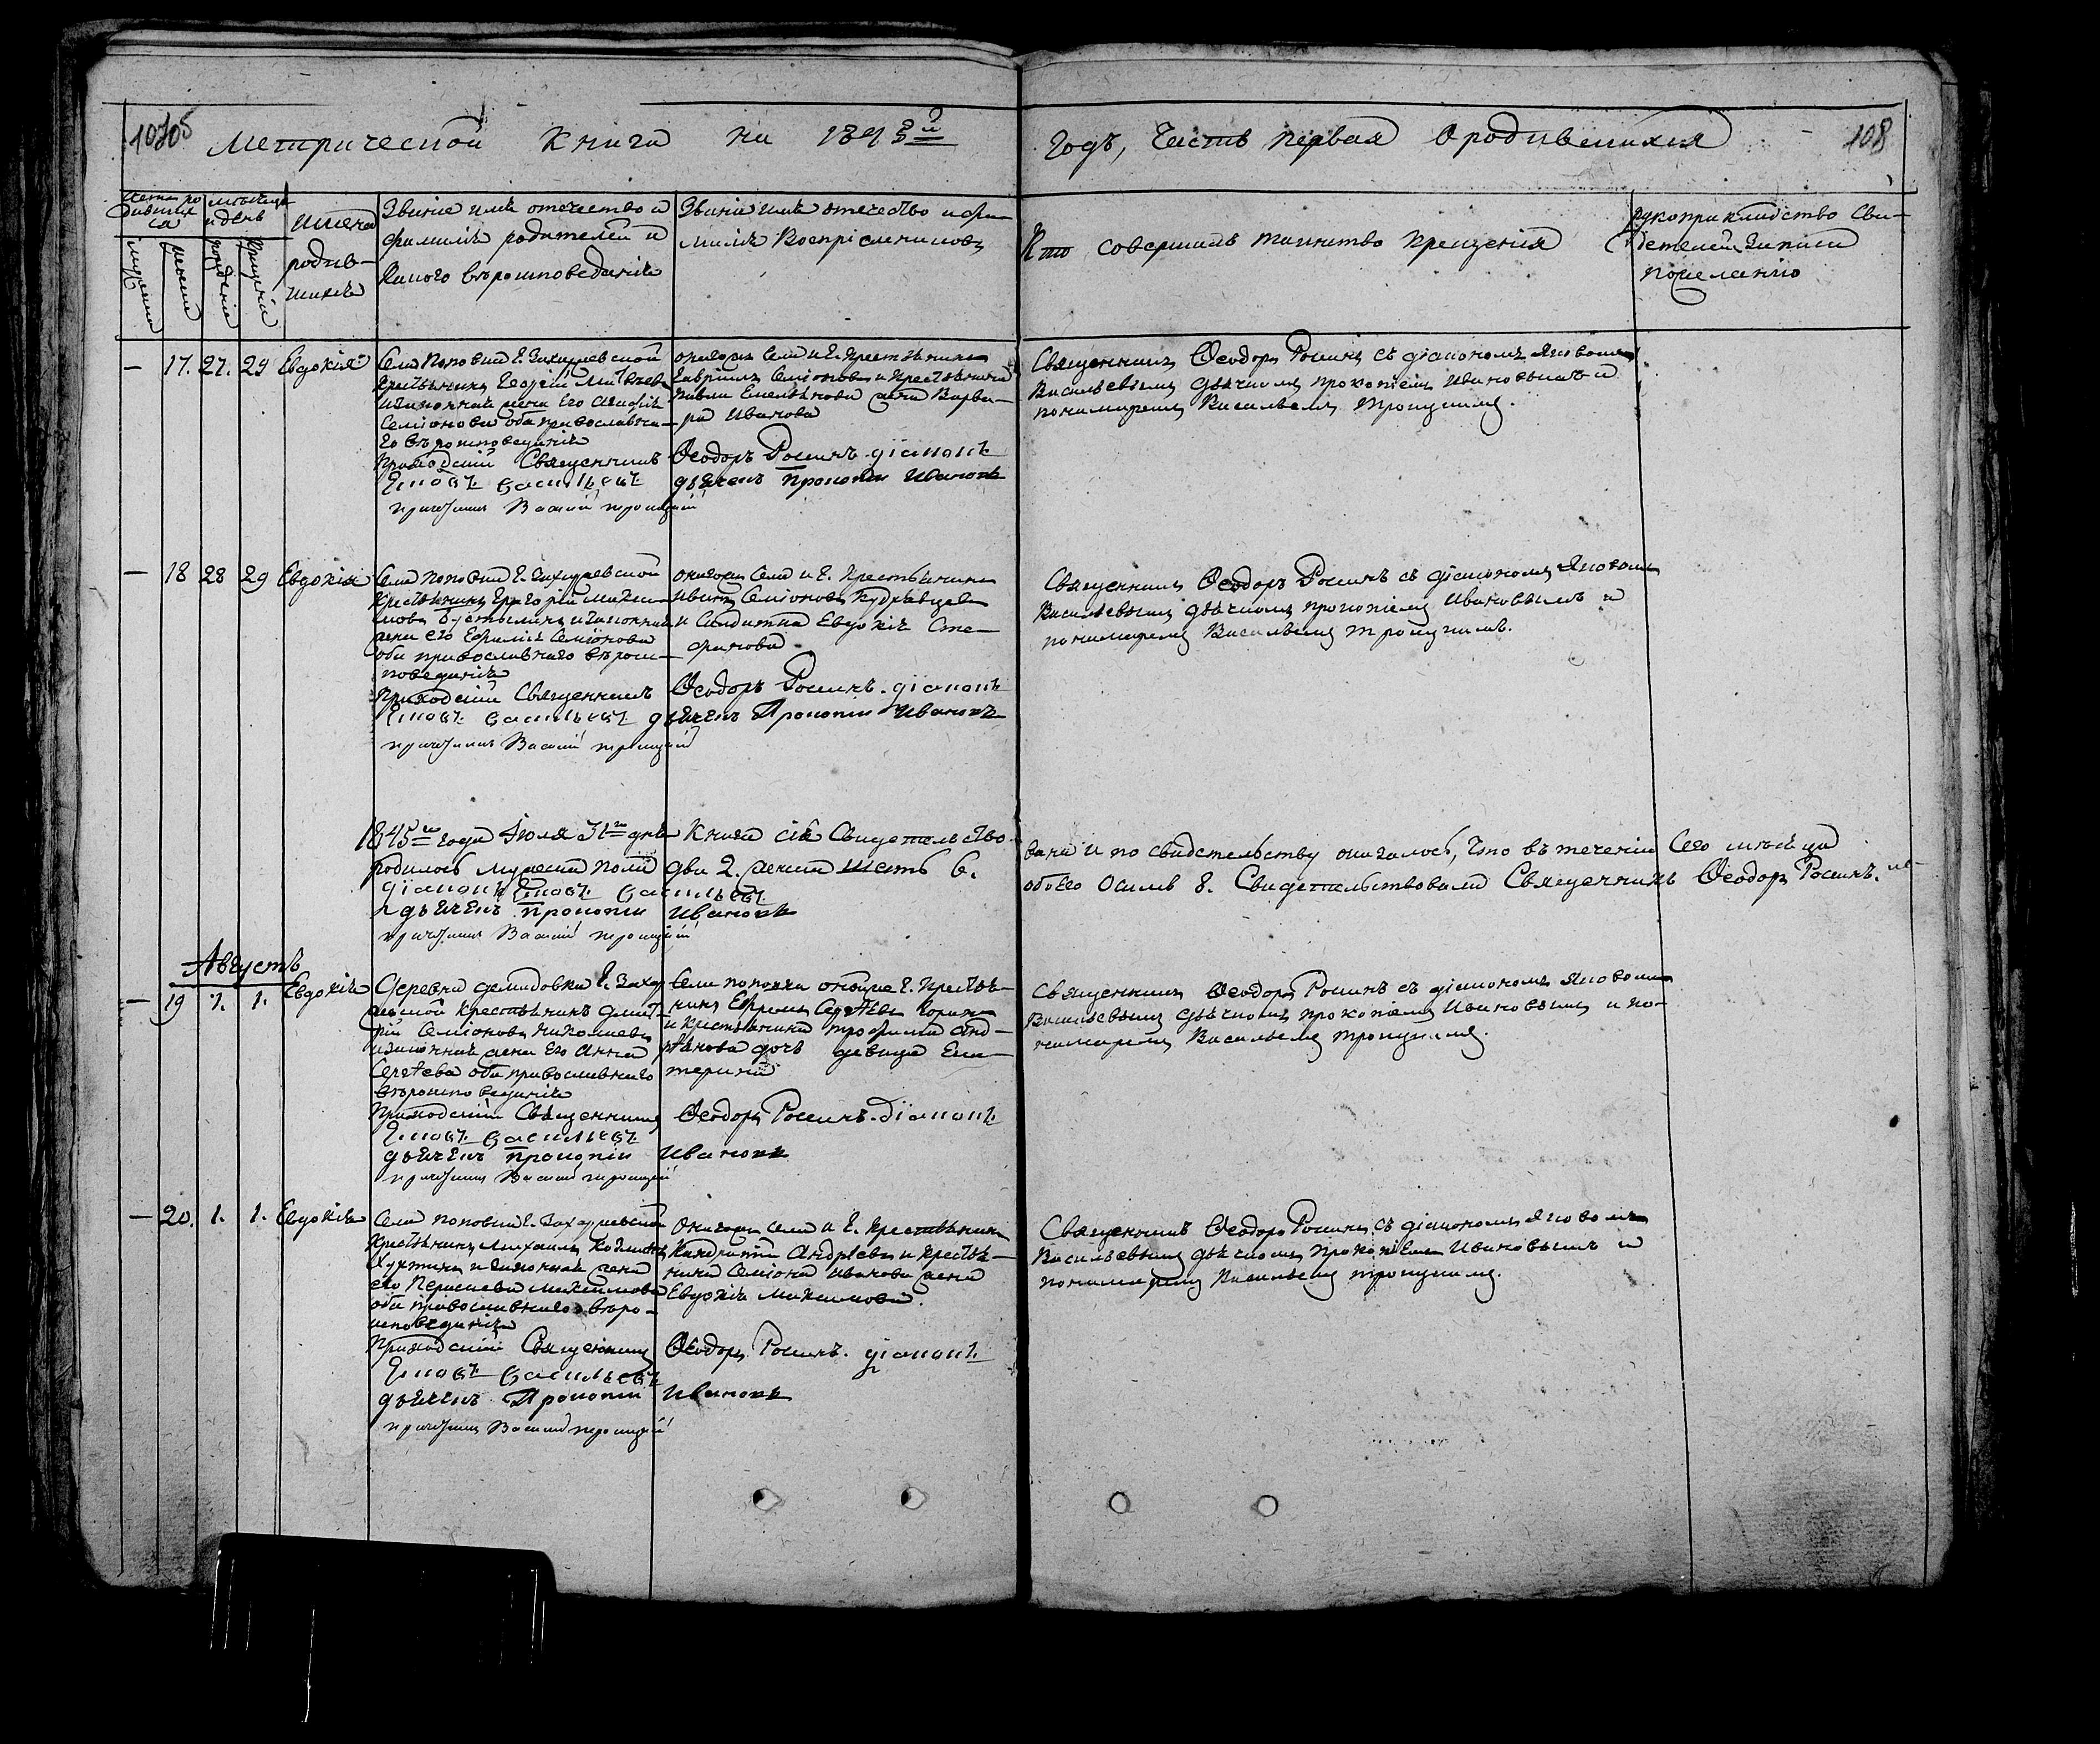 108
Метрической Книга на 1845й Годъ, Часть первая О родившихся
мѣсяцъ
и день
имена
родив-
шихся
Званіе имя отечество и
фамилія родителей и
Какого вѣроисповеданія
Званіе имя отечество и фа-
милія Воспріемниковъ
Кто совершалъ таинство Крещенія
рукоприкладство Сви-
детелей записи
по желанію
— 17. 27. 29 Евдокія
Села Поповки Г. Захаревской
Крестьянинъ Георгій Матвѣевъ
и законная жена Его Агафія
Семіонова оба православна-
го вѣроисповеданія
Приходскій Священникъ
Яковъ Васильевъ
оногожъ Села и Г. Крестьянинъ
Гавріилъ Семіоновъ и Крестьянина
Павла Емельянова жена Варва-
ра Иванова
Ѳеодоръ Росинъ. діаконъ
дьячекъ Прокопій Ивановъ
Василій
Священникъ Ѳеодоръ Росинъ съ діакономъ Яковомъ
Васильевымъ дьячкомъ прокопіемъ Ивановымъ и
пономаремъ Васильемъ Троицкимъ.
— 18 28 29 Евдокія
Села Поповки Г. Захаревской
Крестьянинъ Григорій
и законная
жена его Ефимія Семіонова
оба православнаго вѣрои-
споведанія
Приходскій Священникъ
Яковъ Васильевъ
оногожъ Села и Г. Крестьянинъ
Иванъ Семіоновъ Кудрявцевъ
и Солдатка Евдокія Сте-
фанова
Ѳеодоръ Росинъ. діаконъ
дьячекъ Прокопій Ивановъ
Василій Троицкій
Священникъ Ѳеодоръ Росинъ съ діакономъ Яковомъ
Васильевымъ дьячкомъ прокопіемъ Ивановымъ и
пономаремъ Васильемъ Троицкимъ.
1845го года Іюля 31го дня Книга сія Свидетельство-
вана и по свидетельству оказалось, Что въ теченіи Сего мѣсяца
родилось мужеска пола два 2. женска шесть 6.
обоего Осимь 8. Свидетельствовали Священникъ Ѳеодоръ Росинъ.
діаконъ Яковъ Васильевъ
дьячекъ Прокопій Ивановъ
Василій Троицкій
Августъ
— 19 1. 1. Евдокія
Деревни демидовки Г. Заха-
ревской Крестьянинъ Дмит-
рій Семіоновъ
и законная жена Его Анна
Сергѣева оба православнаго
вѣроисповеданія
Приходскій Священникъ
Яковъ Васильевъ
дьячекъ Прокопій
Села поповки Г. Крестья-
нинъ Ефремъ Сергѣевъ
и Крестьянина трофима Анд-
рѣянова дочь девица Ека-
терина
Ѳеодоръ Росинъ. Діаконъ
Ивановъ
Василій Троицкій
Священникъ Ѳеодоръ Росинъ съ діакономъ Яковомъ
Васильевымъ дьячкомъ прокопіемъ Ивановымъ и по-
номаремъ Васильемъ Троицкимъ.
— 20. 1. 1. Евдокія
Села поповки Г. Захаревской
Крестьянинъ Михаилъ
и законная жена
его Максимова
оба православнаго вѣро-
исповеданія
Приходскій Священникъ
Яковъ Васильевъ
дьячекъ Прокопій
Оногожъ села и Г. Крестьянинъ
Андрѣевъ и Крестья-
нина Семіона Иванова жена
Евдокія Максимова.
Ѳеодоръ Росинъ. діаконъ
Ивановъ
Василій Троицкій
Священникъ Ѳеодоръ Росинъ съ діакономъ Яковомъ
Васильевымъ дьячкомъ прокопіемъ Ивановымъ и
пономаремъ Васильемъ троицкимъ.